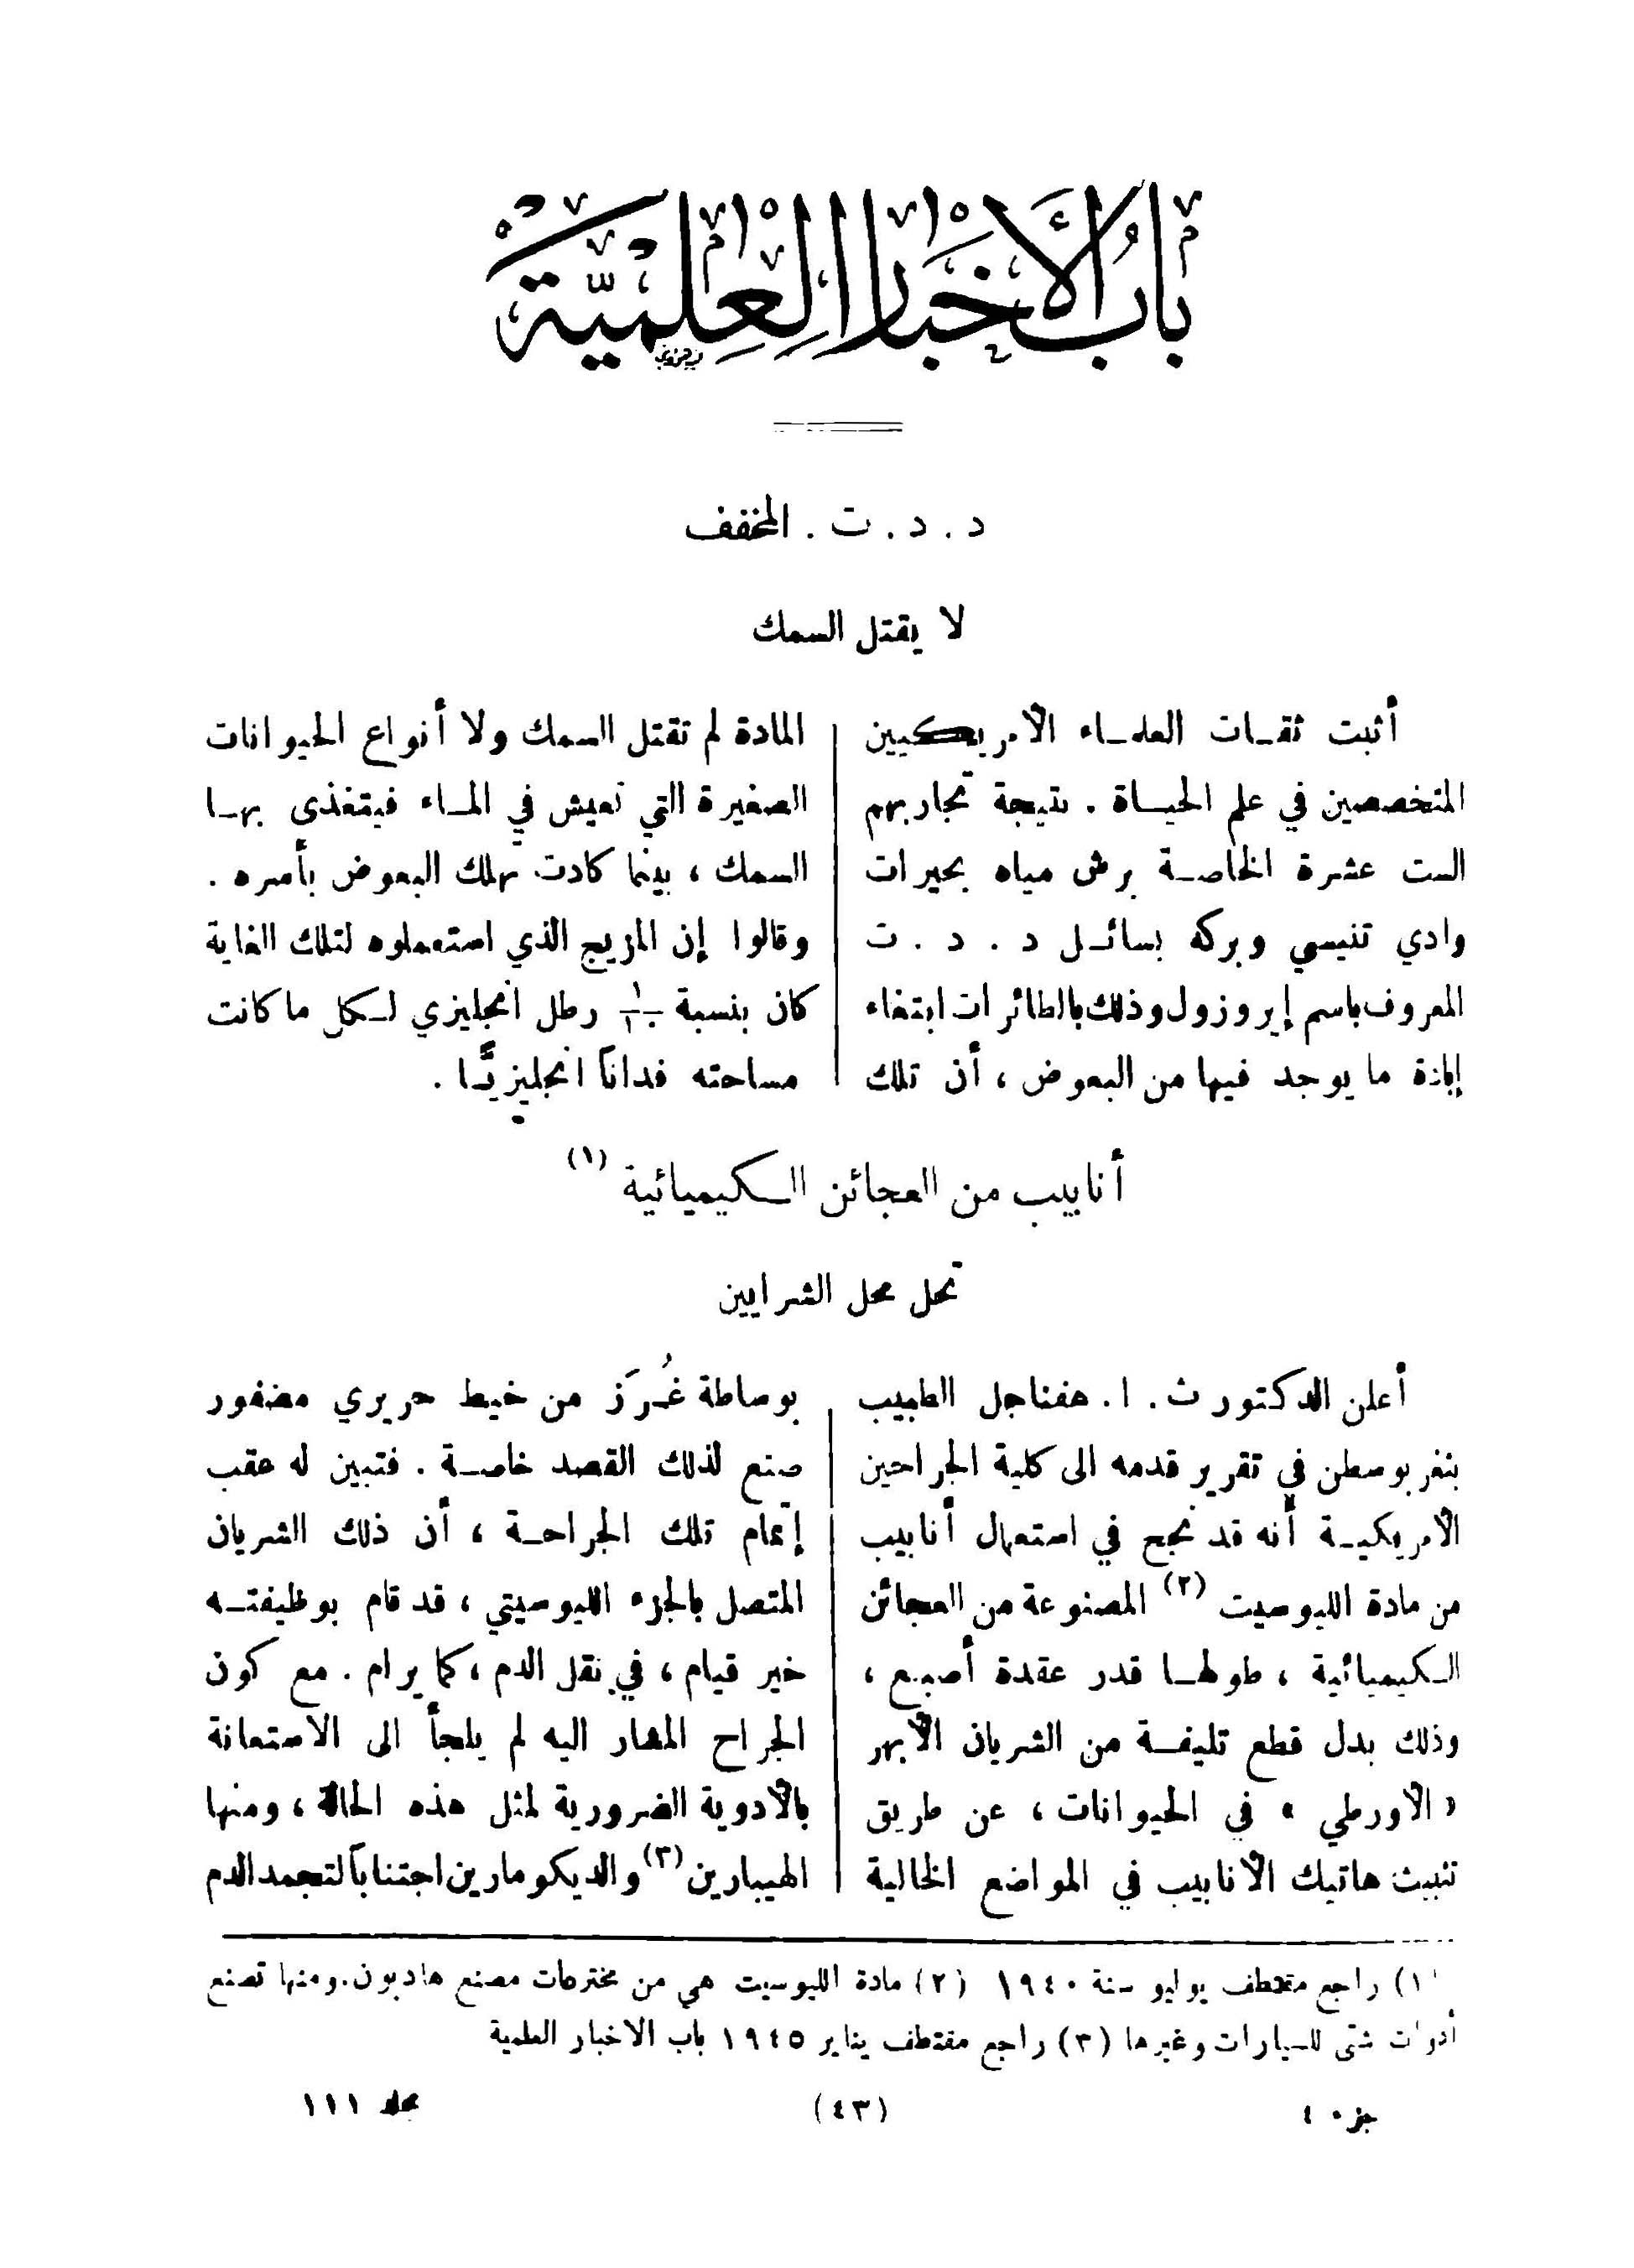 باب الأخبار العلمية
د . د . ت . المخفف
لا يقتل السمك
أثبت ثقات العلماء الأمريكيين
المتخصصين في علم الحياة . نتيجة تجاربهم
الست عشرة الخاصة برش مياه بحيرات
وادي تنيسي وبركه بسائل د . د . ت
المعروف باسم إيروزول وذلك بالطائرات ابتغاء
إبادة ما يوجد فيها من البعوض ، أن تلك
المادة لم تقتل السمك ولا أنواع الحيوانات
الصغيرة التي تعيش في الماء فيتغذى بها
السمك ، بينما كادت تهلك البعوض بأسره .
وقالوا إن المزيج الذي استعملوه لتلك الغاية
كان بنسبة ١/١٠ رطل انجليزي لكل ما كانت
مساحته فداناً انجليزيًّا .
أنابيب من العجائن الكيميائية (١)
تحل محل الشرايين
أعلن الدكتور ث . ا . هفناجل الطبيب
بثغر بوسطن في تقرير قدمه الى كلية الجراحين
الأمريكية أنه قد نجح في استعمال أنابيب
من مادة الليوسيت (٢) المصنوعة من العجائن
الكيميائية ، طولها قدر عقدة أصبع ،
وذلك بدل قطع تليفة من الشريان الأبهر
« الأورطي » في الحيوانات ، عن طريق
تثبيث هاتيك الأنابيب في المواضع الخالية
بوساطة غُرَز من خيط حريري مضفور
صنع لذلك القصد خاصة . فتبين له عقب
إتمام تلك الجراحة ، أن ذلك الشريان
المتصل بالجزء الليوسيتي ، قد قام بوظيفته
خير قيام ، في نقل الدم ، كما يرام . مع كون
الجراح المشار اليه لم يلجأ الى الاستعانة
بالأدوية الضرورية لمثل هذه الحالة ، ومنها
الهيبارين (٣) والديكومارين اجتناباً لتجمد الدم
(١) راجع مقتطف يوليو سنة ١٩٤٠ (٢) مادة الليوسيت هي من مخترعات مصنع هادبون . ومنها تصنع
أدوات شتى للسيارات وغيرها (٣) راجع مقتطف يناير ١٩٤٥ باب الاخبار العلمية
جزء ٤ (٤٣) مجلد ١١١